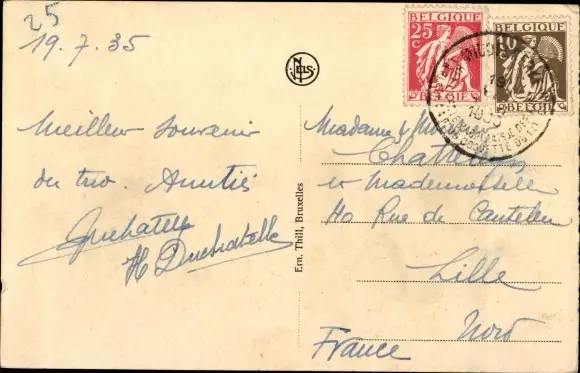 25
19.7.35
Meilleur souvenir
du trio. Amitiés
H Duchatelle
NELS
Ern. Thill, Bruxelles
BELGIQUE
25
C
BELGIE
BELGIQUE
10
C
BELGIE
Madame & 
et Mademoiselle
40 Rue de Canteleu
Lille
Nord
France